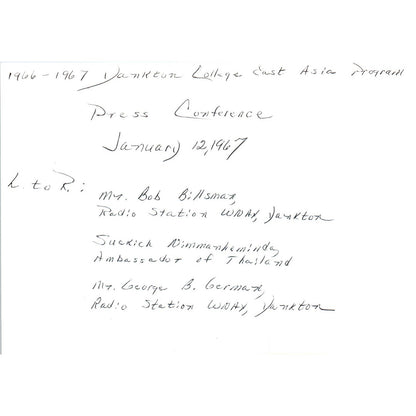 1966-1967 Yankton College East Asia Program
Press Conference
January 12, 1967
L. to R.:
Mr. Bob Billsmax,
Radio Station WNAX, Yankton
Suckich Nimmanheminda,
Ambassador of Thailand
Mr. George B. German,
Radio Station WNAX, Yankton